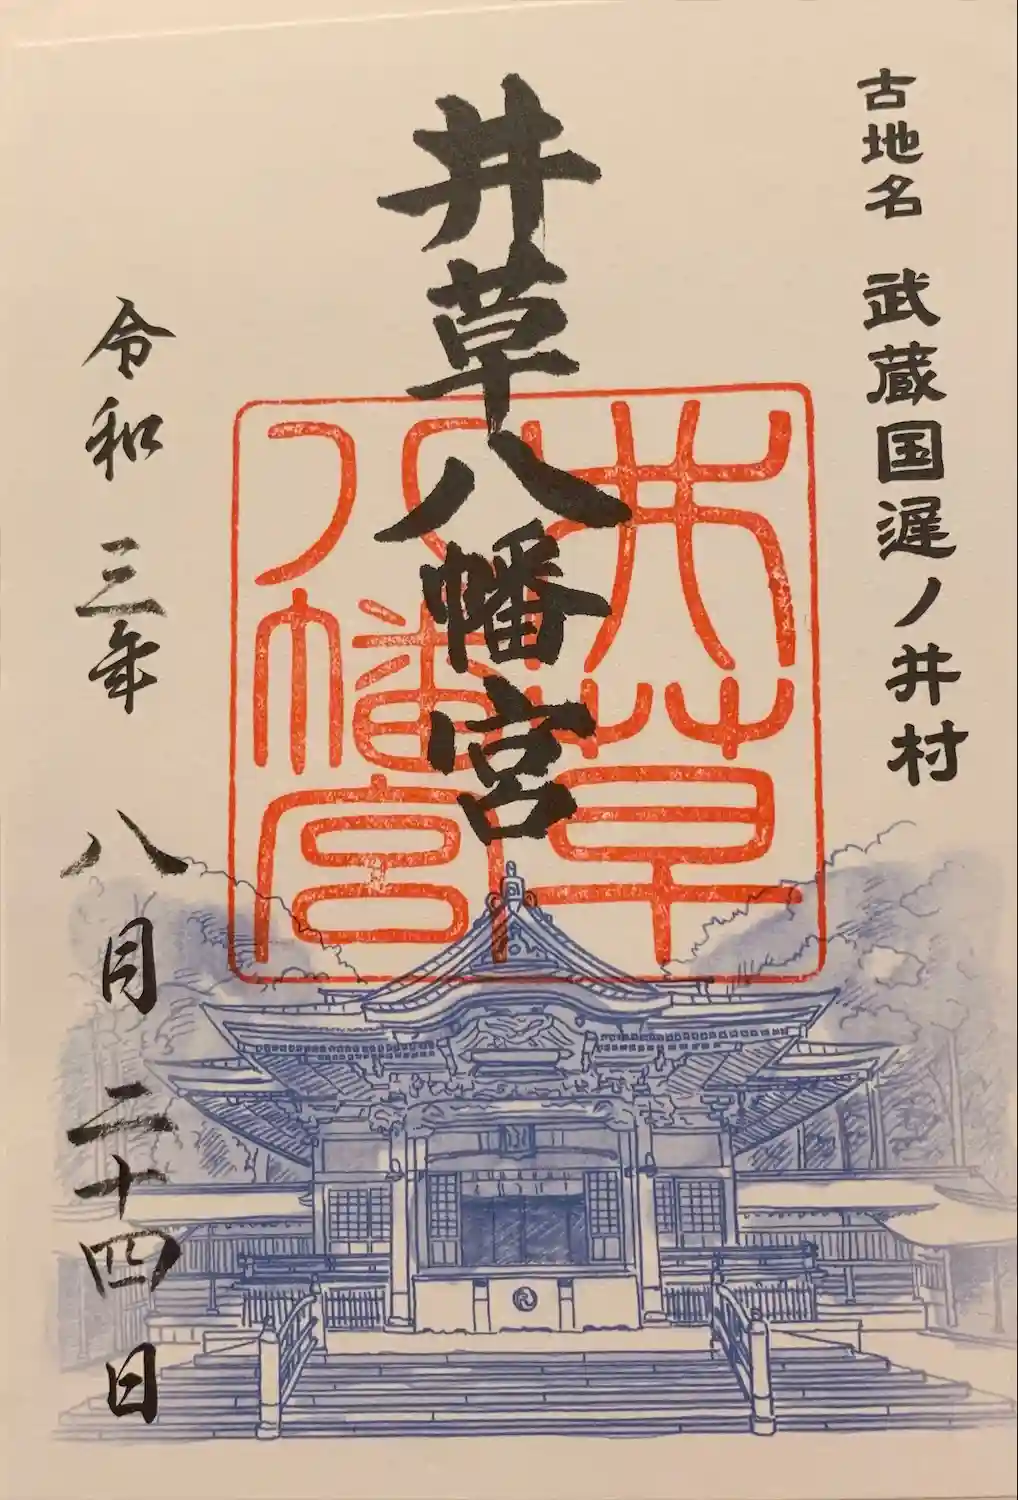 古地名 武蔵国遅ノ井村
井草八幡宮
井草
八幡宮
令和 三年 八月 二十四日